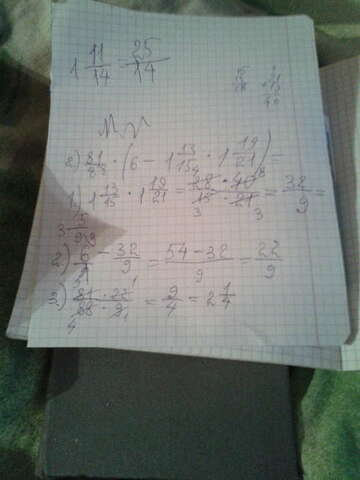 1 11/14 = 25/14
2) 81/88 · (6 − 1 13/15 · 1 19/21) =
1) 1 13/15 · 1 19/21 = 28 · 40 / 15 · 21 = 32/9 =
3 5/9
2) 6/1 − 32/9 = 54 − 32 / 9 = 22/9
3) 81 · 22 / 88 · 9 = 9/4 = 2 1/4